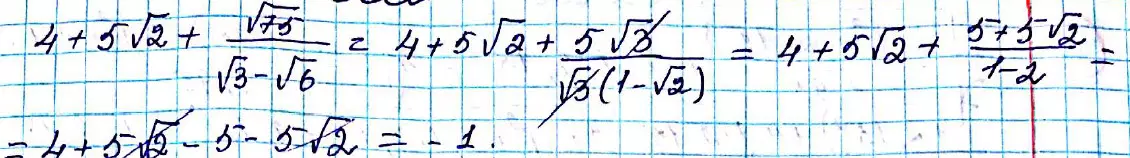 4 + 5√2 + √75/(√3 - √6) = 4 + 5√2 + 5√3/(√3(1 - √2)) = 4 + 5√2 + (5 + 5√2)/(1 - 2) =
= 4 + 5√2 - 5 - 5√2 = - 1.